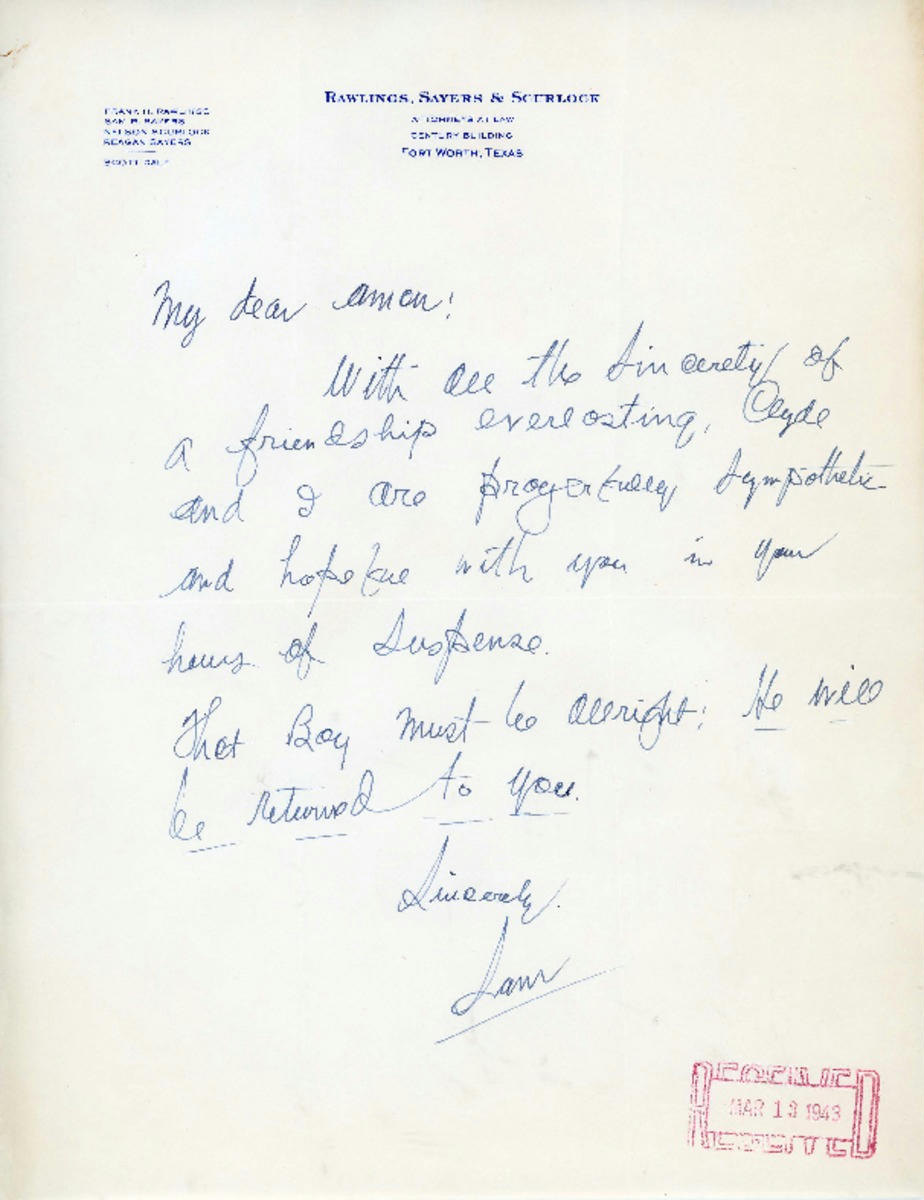 RAWLINGS, SAYERS & SCURLOCK
ATTORNEYS AT LAW
CENTURY BUILDING
FORT WORTH, TEXAS
FRANK H. RAWLINGS
SAM B. SAYERS
NELSON SCURLOCK
REAGAN SAYERS
SCOTT
My dear Amon:
With all the sincerety of
a friendship everlasting, Clyde
and I are prayerfully sympathetic
and hopeful with you in your
hours of suspense.
That Boy must be allright; He will
be returned to you.
Sincerely,
Sam
RECEIVED
MAR 13 1943